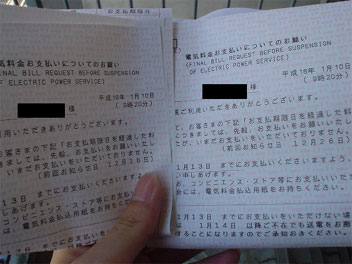 お支払期限日
気料金お支払いについてのお願い
FINAL BILL REQUEST BEFORE SUSPENSION
OF ELECTRIC POWER SERVICE)
平成16年 1月10日
( 9時20分)
様
用いただきありがとうございます。
お客さまの下記「お支払期限日を経過した料
きましては、先般、お支払をお願いいたし
いまだお支払いをいただいておりません。
(前回お知らせ日 12月26日)
月13日 までにお支払いくださいますよう
しあげます。
お、コンビニエンス・ストア等にてお支払いただく
は、電気料金払込用紙をお持ちください。
月13日 までにお支払いを
電気料金お支払いについてのお願い
(FINAL BILL REQUEST BEFORE SUSPENSION
OF ELECTRIC POWER SERVICE)
平成16年 1月10日
( 9時20分)
様
ご利用いただきありがとうございます。
て、お客さまの下記「お支払期限日を経過した料
つきましては、先般、お支払をお願いいたし
、いまだお支払いをいただいておりません。
(前回お知らせ日 12月26日)
1月13日 までにお支払いくださいますよう、
しあげます。
お、コンビニエンス・ストア等にてお支払いただく
は、電気料金払込用紙をお持ちください。
月13日 までにお支払いをいただけない場
1月14日 以降ご不在でも送電をお断
ることになりますのでご承知おきください。